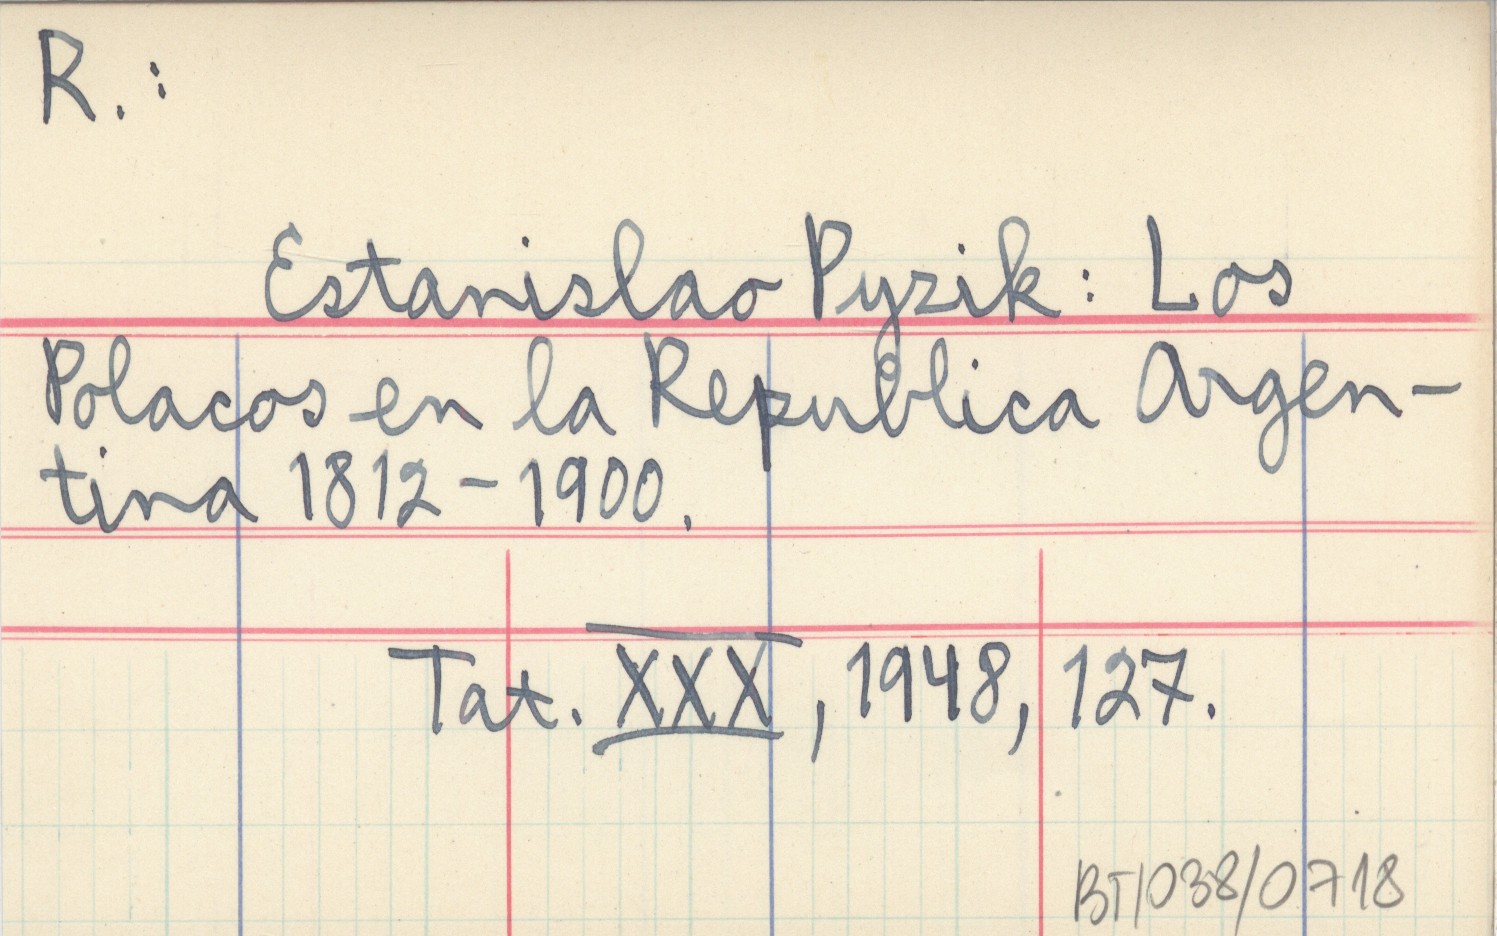 R.:
Estanislao Pyzik: Los
Polacos en la Republica Argen-
tina 1812-1900.
Tat. XXX, 1948, 127.
BT/038/0718